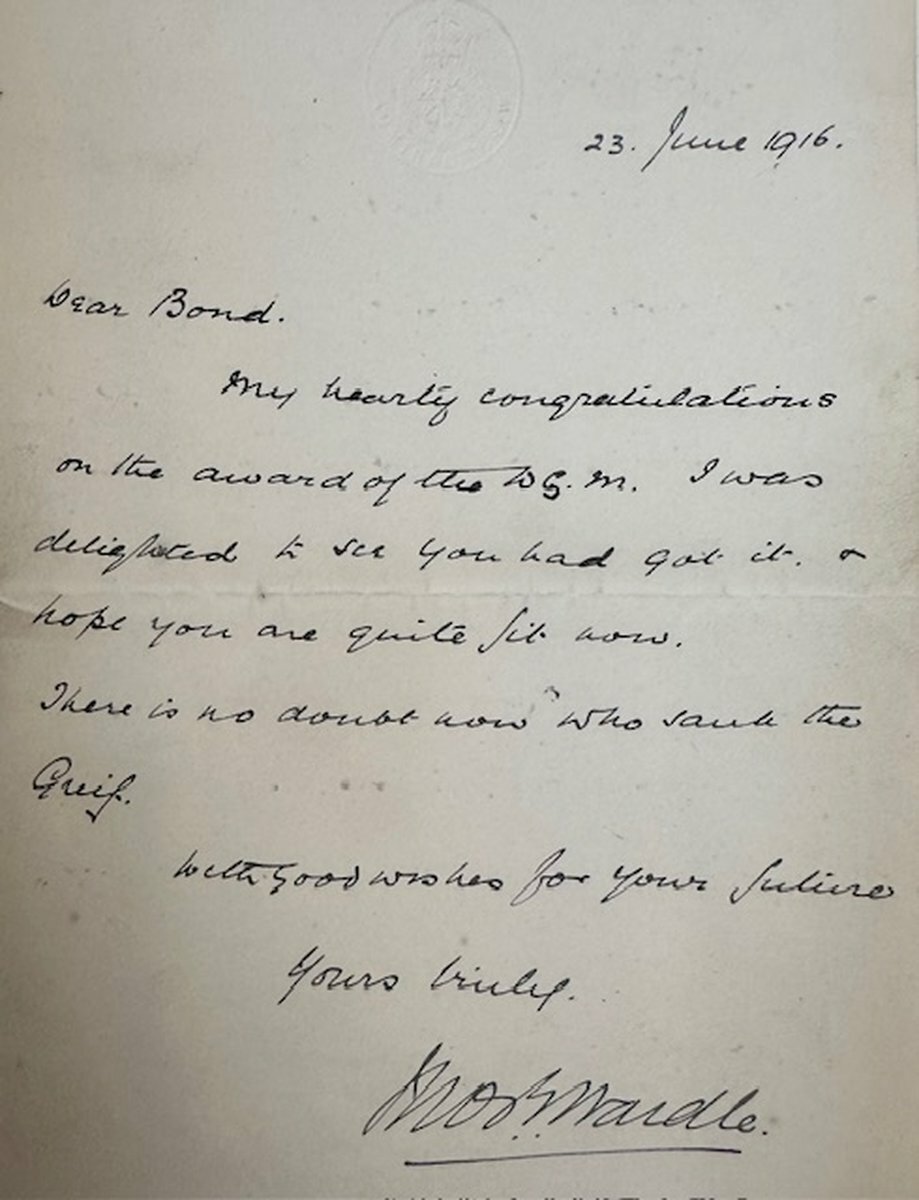 23. June 1916.
Dear Bond.
My hearty congratulations
on the award of the D.S.M. I was
delighted to see you had got it. &
hope you are quite fit now.
There is no doubt now who sank the
Greif.
With good wishes for your future
Yours truly.
Wardle.